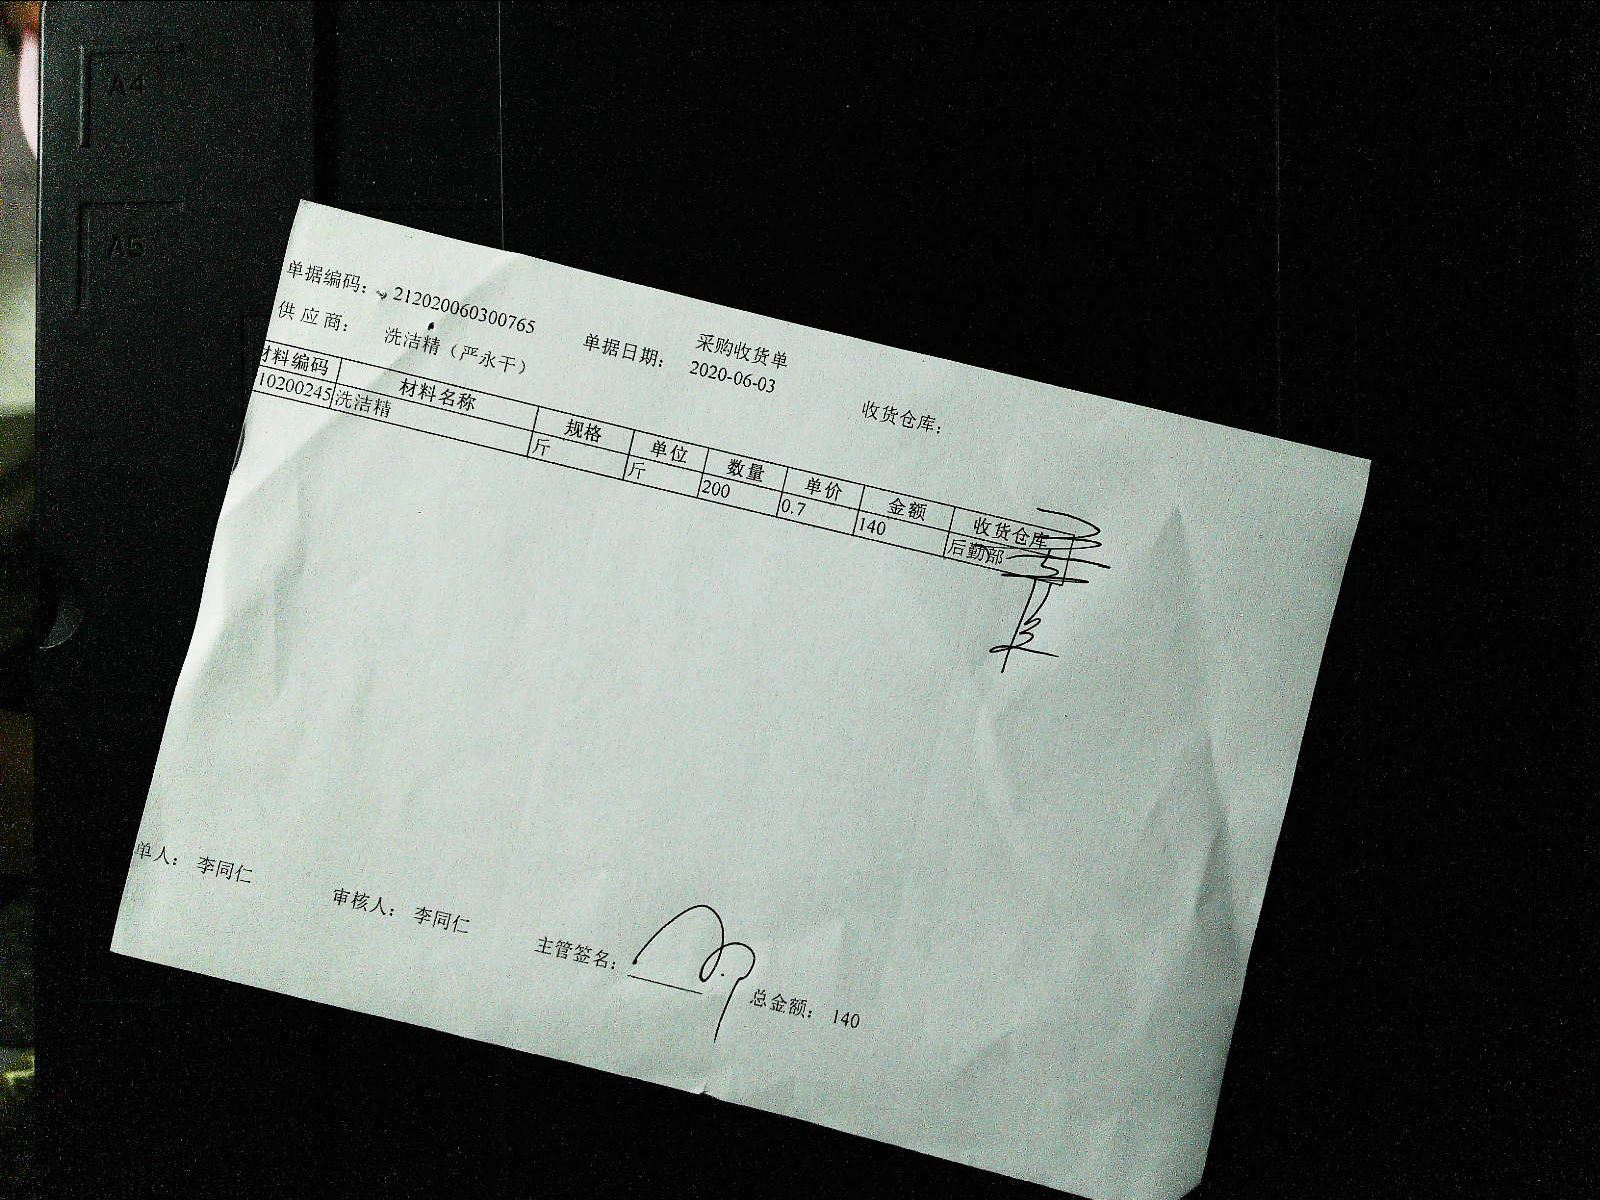 A4
A5
采购收货单
单据编码： 212020060300765 单据日期： 2020-06-03 收货仓库：
供应商： 洗洁精（严永干）
材料编码 材料名称 规格 单位 数量 单价 金额 收货仓库
10200245 洗洁精 斤 斤 200 0.7 140 后勤部
单人： 李同仁 审核人： 李同仁 主管签名： 总金额： 140